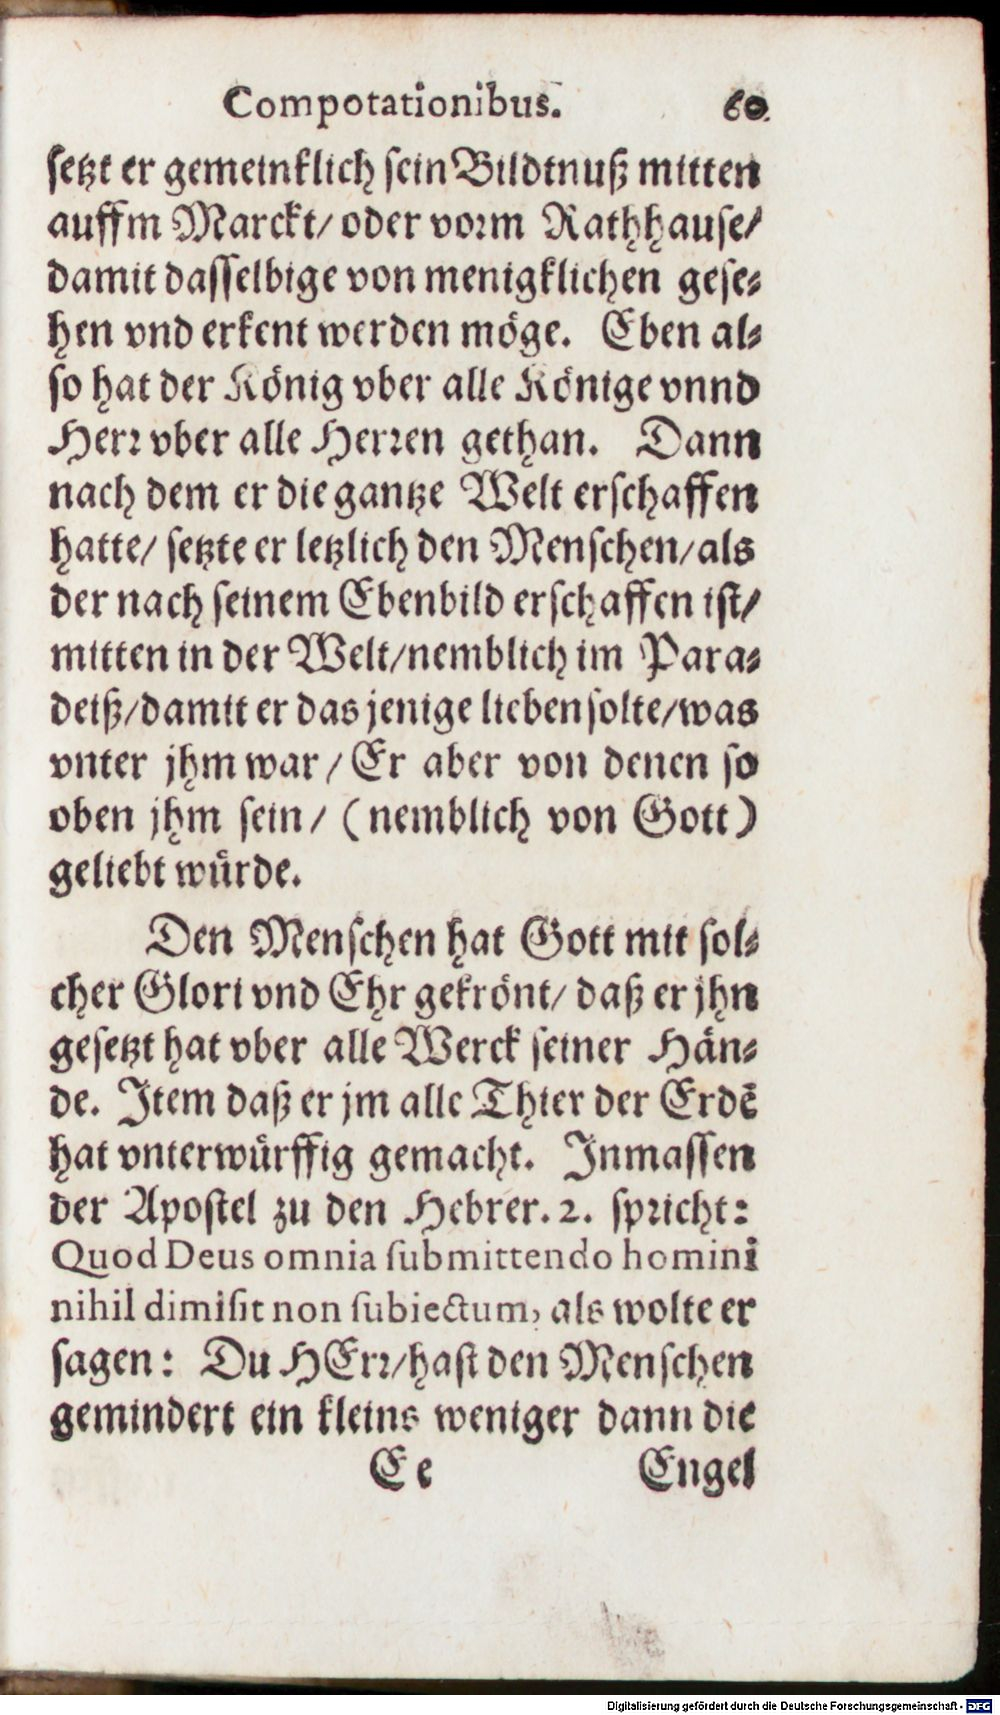 Compotationibus. 60.
setzt er gemeinklich sein Bildtnuß mitten
auffm Marckt/ oder vorm Rathhause/
damit dasselbige von menigklichen gese-
hen vnd erkent werden möge. Eben al-
so hat der König vber alle Könige vnnd
Herr vber alle Herren gethan. Dann
nach dem er die gantze Welt erschaffen
hatte/ setzte er letzlich den Menschen/ als
der nach seinem Ebenbild erschaffen ist/
mitten in der Welt/ nemblich im Para-
deiß/ damit er das jenige lieben solte/ was
vnter jhm war/ Er aber von denen so
oben jhm sein/ (nemblich von Gott)
geliebt würde.
Den Menschen hat Gott mit sol-
cher Glori vnd Ehr gekrönt/ daß er jhn
gesetzt hat vber alle Werck seiner Hän-
de. Item daß er jm alle Thier der Erdē
hat vnterwürffig gemacht. Inmassen
der Apostel zu den Hebrer. 2. spricht:
Quod Deus omnia submittendo homini
nihil dimisit non subiectum, als wolte er
sagen: Du HErr/ hast den Menschen
gemindert ein kleins weniger dann die
Ee Engel
Digitalisierung gefördert durch die Deutsche Forschungsgemeinschaft - DFG